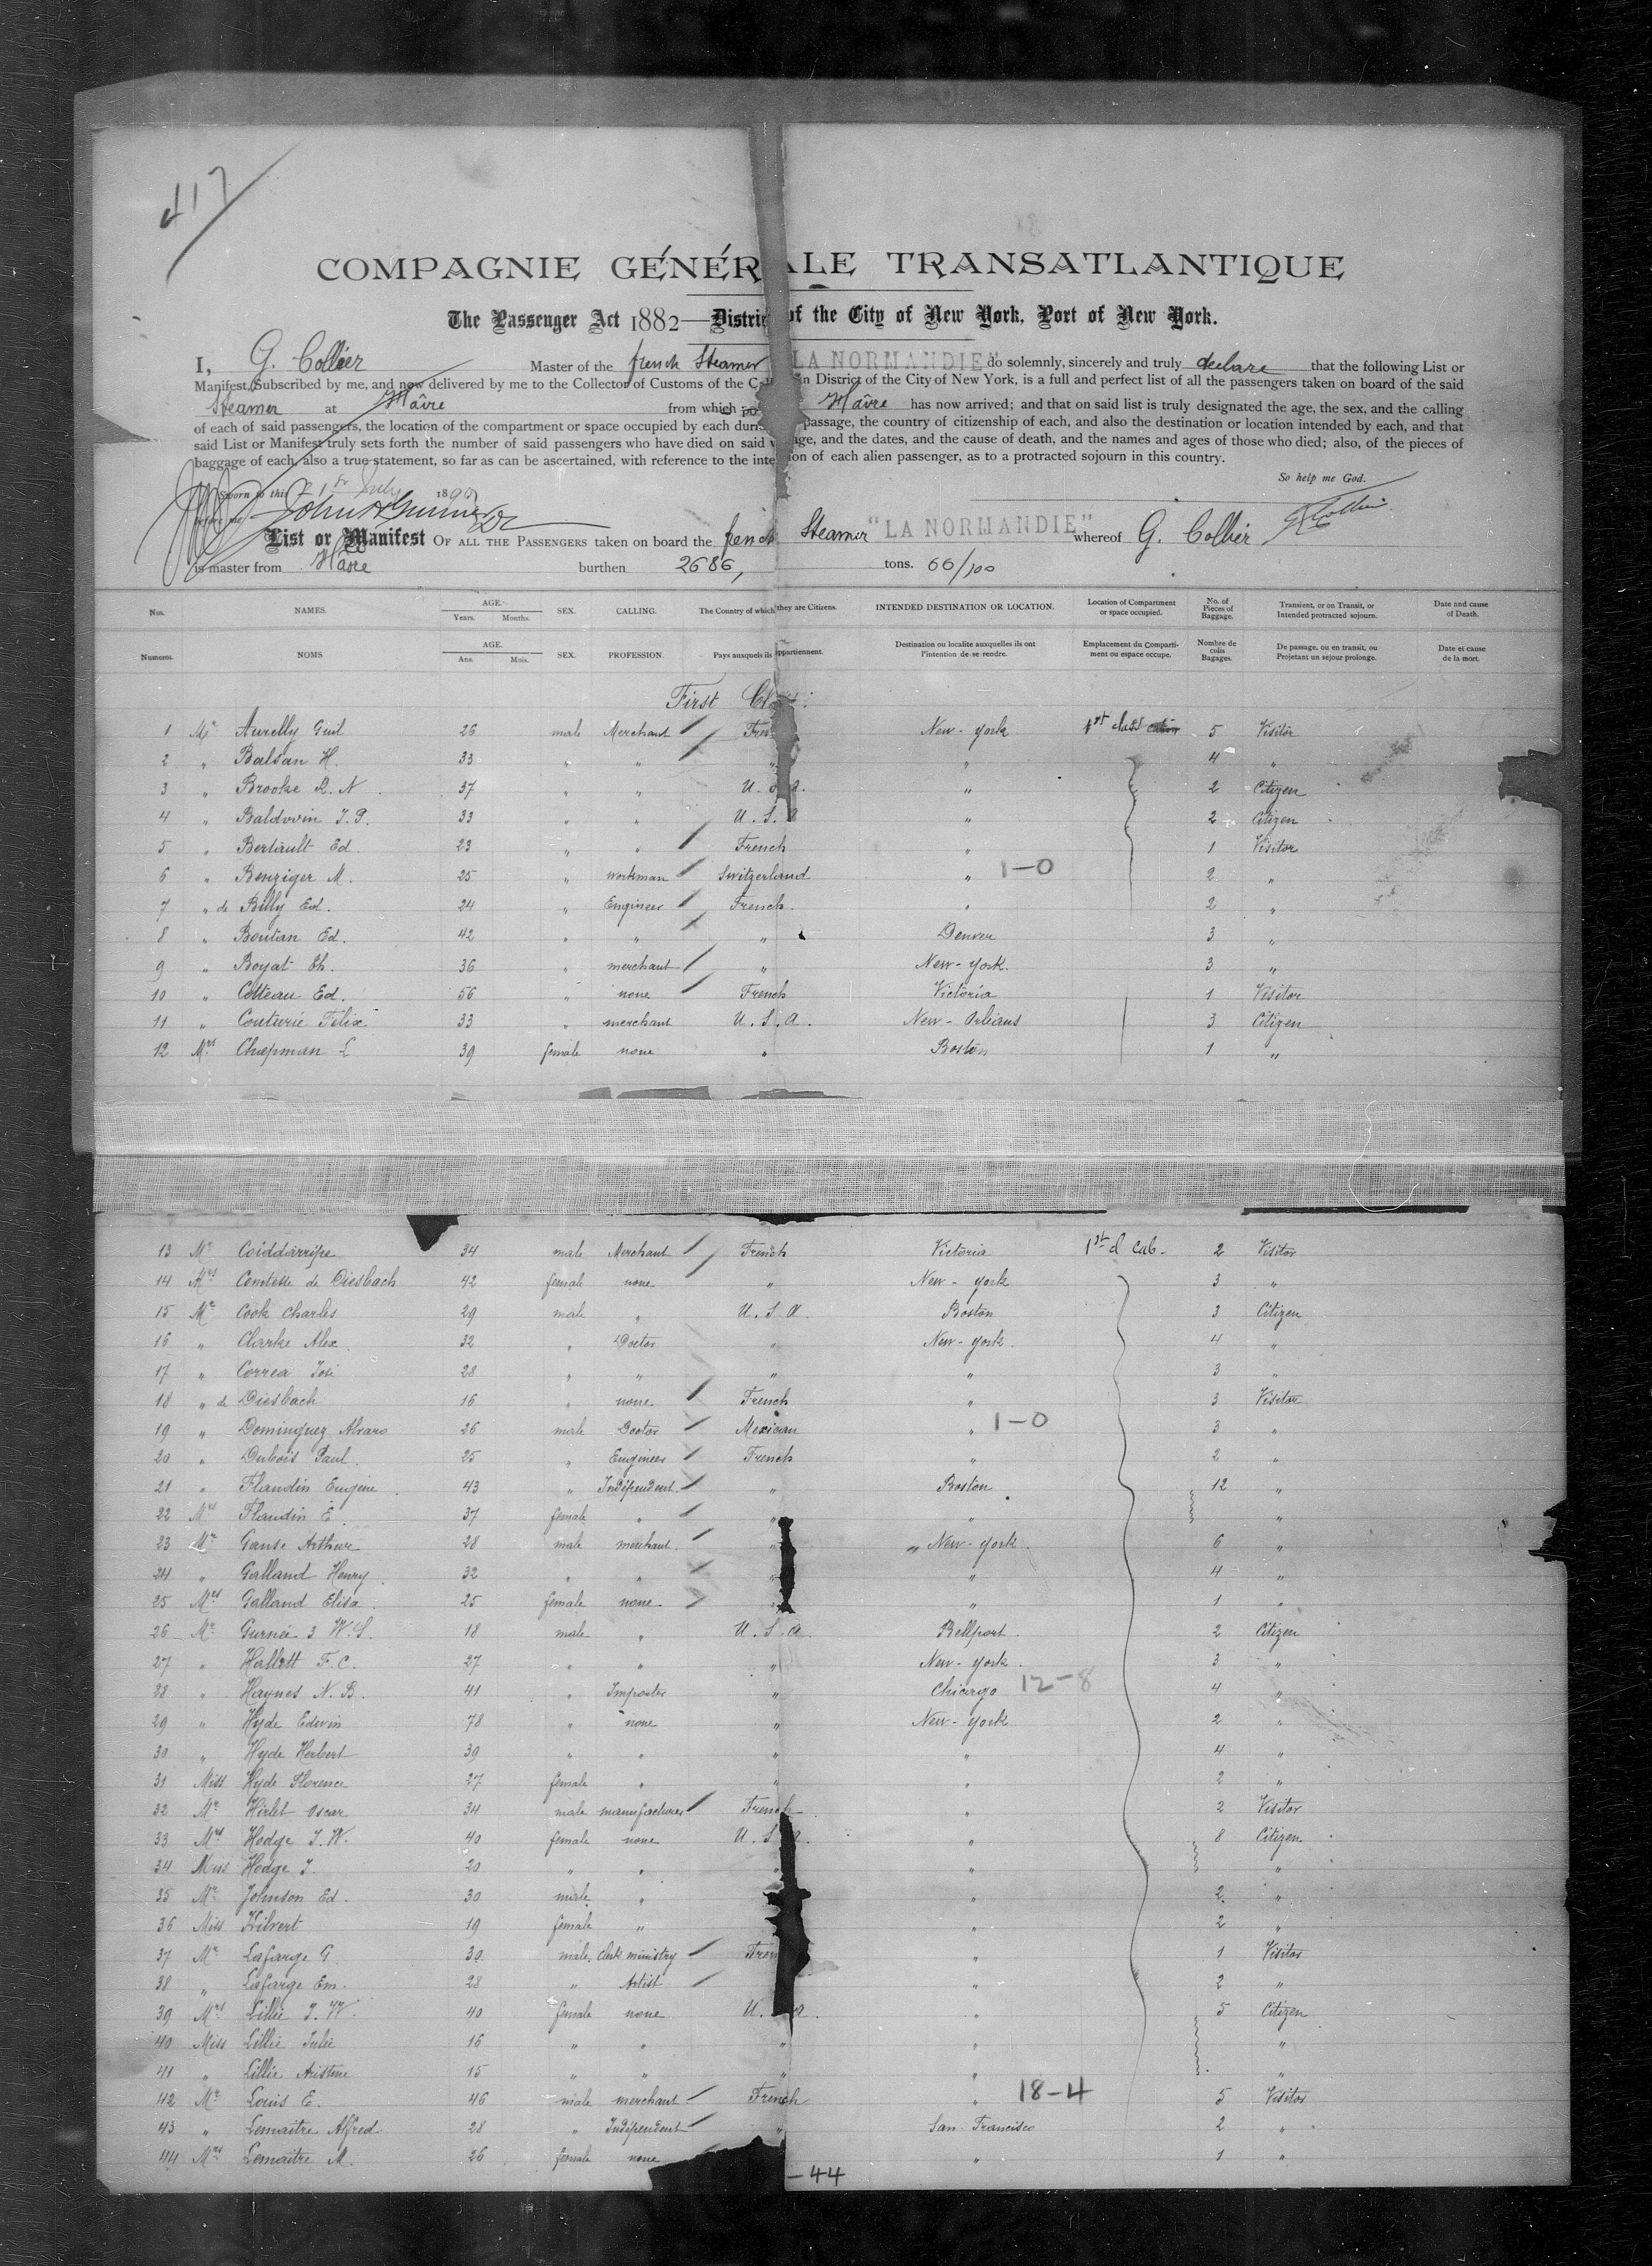 417
COMPAGNIE GÉNÉRALE TRANSATLANTIQUE
The Passenger Act 1882—District of the City of New York, Port of New York.
I, G. Collier Master of the french Steamer "LA NORMANDIE" do solemnly, sincerely and truly declare that the following List or
Manifest, Subscribed by me, and now delivered by me to the Collector of Customs of the in District of the City of New York, is a full and perfect list of all the passengers taken on board of the said
Steamer at Hâvre from which Hâvre has now arrived; and that on said list is truly designated the age, the sex, and the calling
of each of said passengers, the location of the compartment or space occupied by each during passage, the country of citizenship of each, and also the destination or location intended by each, and that
said List or Manifest truly sets forth the number of said passengers who have died on said voyage, and the dates, and the cause of death, and the names and ages of those who died; also, of the pieces of
baggage of each, also a true statement, so far as can be ascertained, with reference to the intention of each alien passenger, as to a protracted sojourn in this country.
So help me God.
Sworn to this 21st July 1890
before me
G. Collier
List or Manifest OF ALL THE PASSENGERS taken on board the french Steamer "LA NORMANDIE" whereof G. Collier
is master from Havre burthen 2686, tons. 66/100
Nos. NAMES. AGE. Years. Months. SEX. CALLING. The Country of which they are Citizens. INTENDED DESTINATION OR LOCATION. Location of Compartment or space occupied. No. of Pieces of Baggage. Transient, or on Transit, or Intended protracted sojourn. Date and cause of Death.
Numeros. NOMS AGE. Ans. Mois. SEX. PROFESSION. Pays auxquels ils appartiennent. Destination ou localite auxquelles ils ont l'intention de se rendre. Emplacement du Compartiment ou espace occupe. Nombre de colis Bagages. De passage, ou en transit, ou Projetant un sejour prolonge. Date et cause de la mort.
First Class:
1 Mr Aurelly Guil 26 male Merchant Fren New-york 1st class 5 Visitor
2 " Balsan H. 33 " " " " 4 "
3 " Brooke R. N. 37 " " U. S. a. " 2 Citizen
4 " Baldwin J. P. 33 " " U. S. a " 2 Citizen
5 " Bertault Ed. 23 " " French " 1 Visitor
6 " Benziger M. 25 " workman Switzerland " 1-0 2 "
7 " de Billy Ed. 24 " Engineer French. " 2 "
8 " Boutan Ed. 42 " " " Denver 3 "
9 " Boyat Eh. 36 " merchant " New-york. 3 "
10 " Cotteau Ed. 56 " none French Victoria 1 Visitor
11 " Couturié Félix 33 " merchant U. S. a. New-Orléans 3 Citizen
12 Mrs Chapman L 39 female none " Boston 1 "
13 Mr 34 male Merchant French Victoria 1st cl Cab. 2 Visitor
14 Mrs Comtesse de Diesbach 42 female none " New-york 3 "
15 Mr Cook Charles 29 male " U. S. a. Boston 3 Citizen
16 " Clarke Alex 32 " Doctor " New-york. 4 "
17 " Correa José 28 " " " " 3 "
18 " de Diesbach 16 " none French " 3 Visitor
19 " Dominguez Alvaro 26 male Doctor Mexican " 1-0 3 "
20 " Dubois Paul 25 " Engineer French " 2 "
21 " Flandin Eugène 43 " Indépendent " Boston 12 "
22 Mrs Flandin E. 37 female " " " "
23 Mr Ganse Arthur 28 male merchant. " " New-york 6 "
24 " Galland Henry 32 " " " " 4 "
25 Mrs Galland Elisa 25 female none. " " 1 "
26 Mr Gurnée 3 W. S. 18 male " U. S. a. Bellport. 2 Citizen
27 " Hallett F. C. 27 " " " New-york. 3 "
28 " Haynes N. B. 41 " Importer " Chicago 12-8 4 "
29 " Hyde Edwin 78 " none " New-york 2 "
30 " Hyde Herbert 39 " " " " 4 "
31 Miss Hyde Florence 27 female " " " 2 "
32 Mr Hirlet Oscar 34 male manufacturer French " 2 Visitor
33 Mrs Hodge J. W. 40 female none U. S. a. " 8 Citizen
34 Miss Hodge J. 20 " " " " "
35 Mr Johnson Ed. 30 male " " 2 "
36 Miss Hilvert 19 female " " 2 "
37 Mr Lafarge G. 30 male. clerk ministry Fren " 1 Visitor
38 " Lafarge Em. 28 " Artist " 2 "
39 Mrs Lillie J. W. 40 female none U. a. " 5 Citizen
40 Miss Lillie Julie 16 " " " " "
41 " Lillie 15 " " " " "
42 Mr Louis E. 46 male merchant French " 18-4 5 Visitor
43 " Lemaitre Alfred 28 " Indépendent " San-Francisco 2 "
44 Mrs Lemaitre M. 26 female none " 1 "
-44